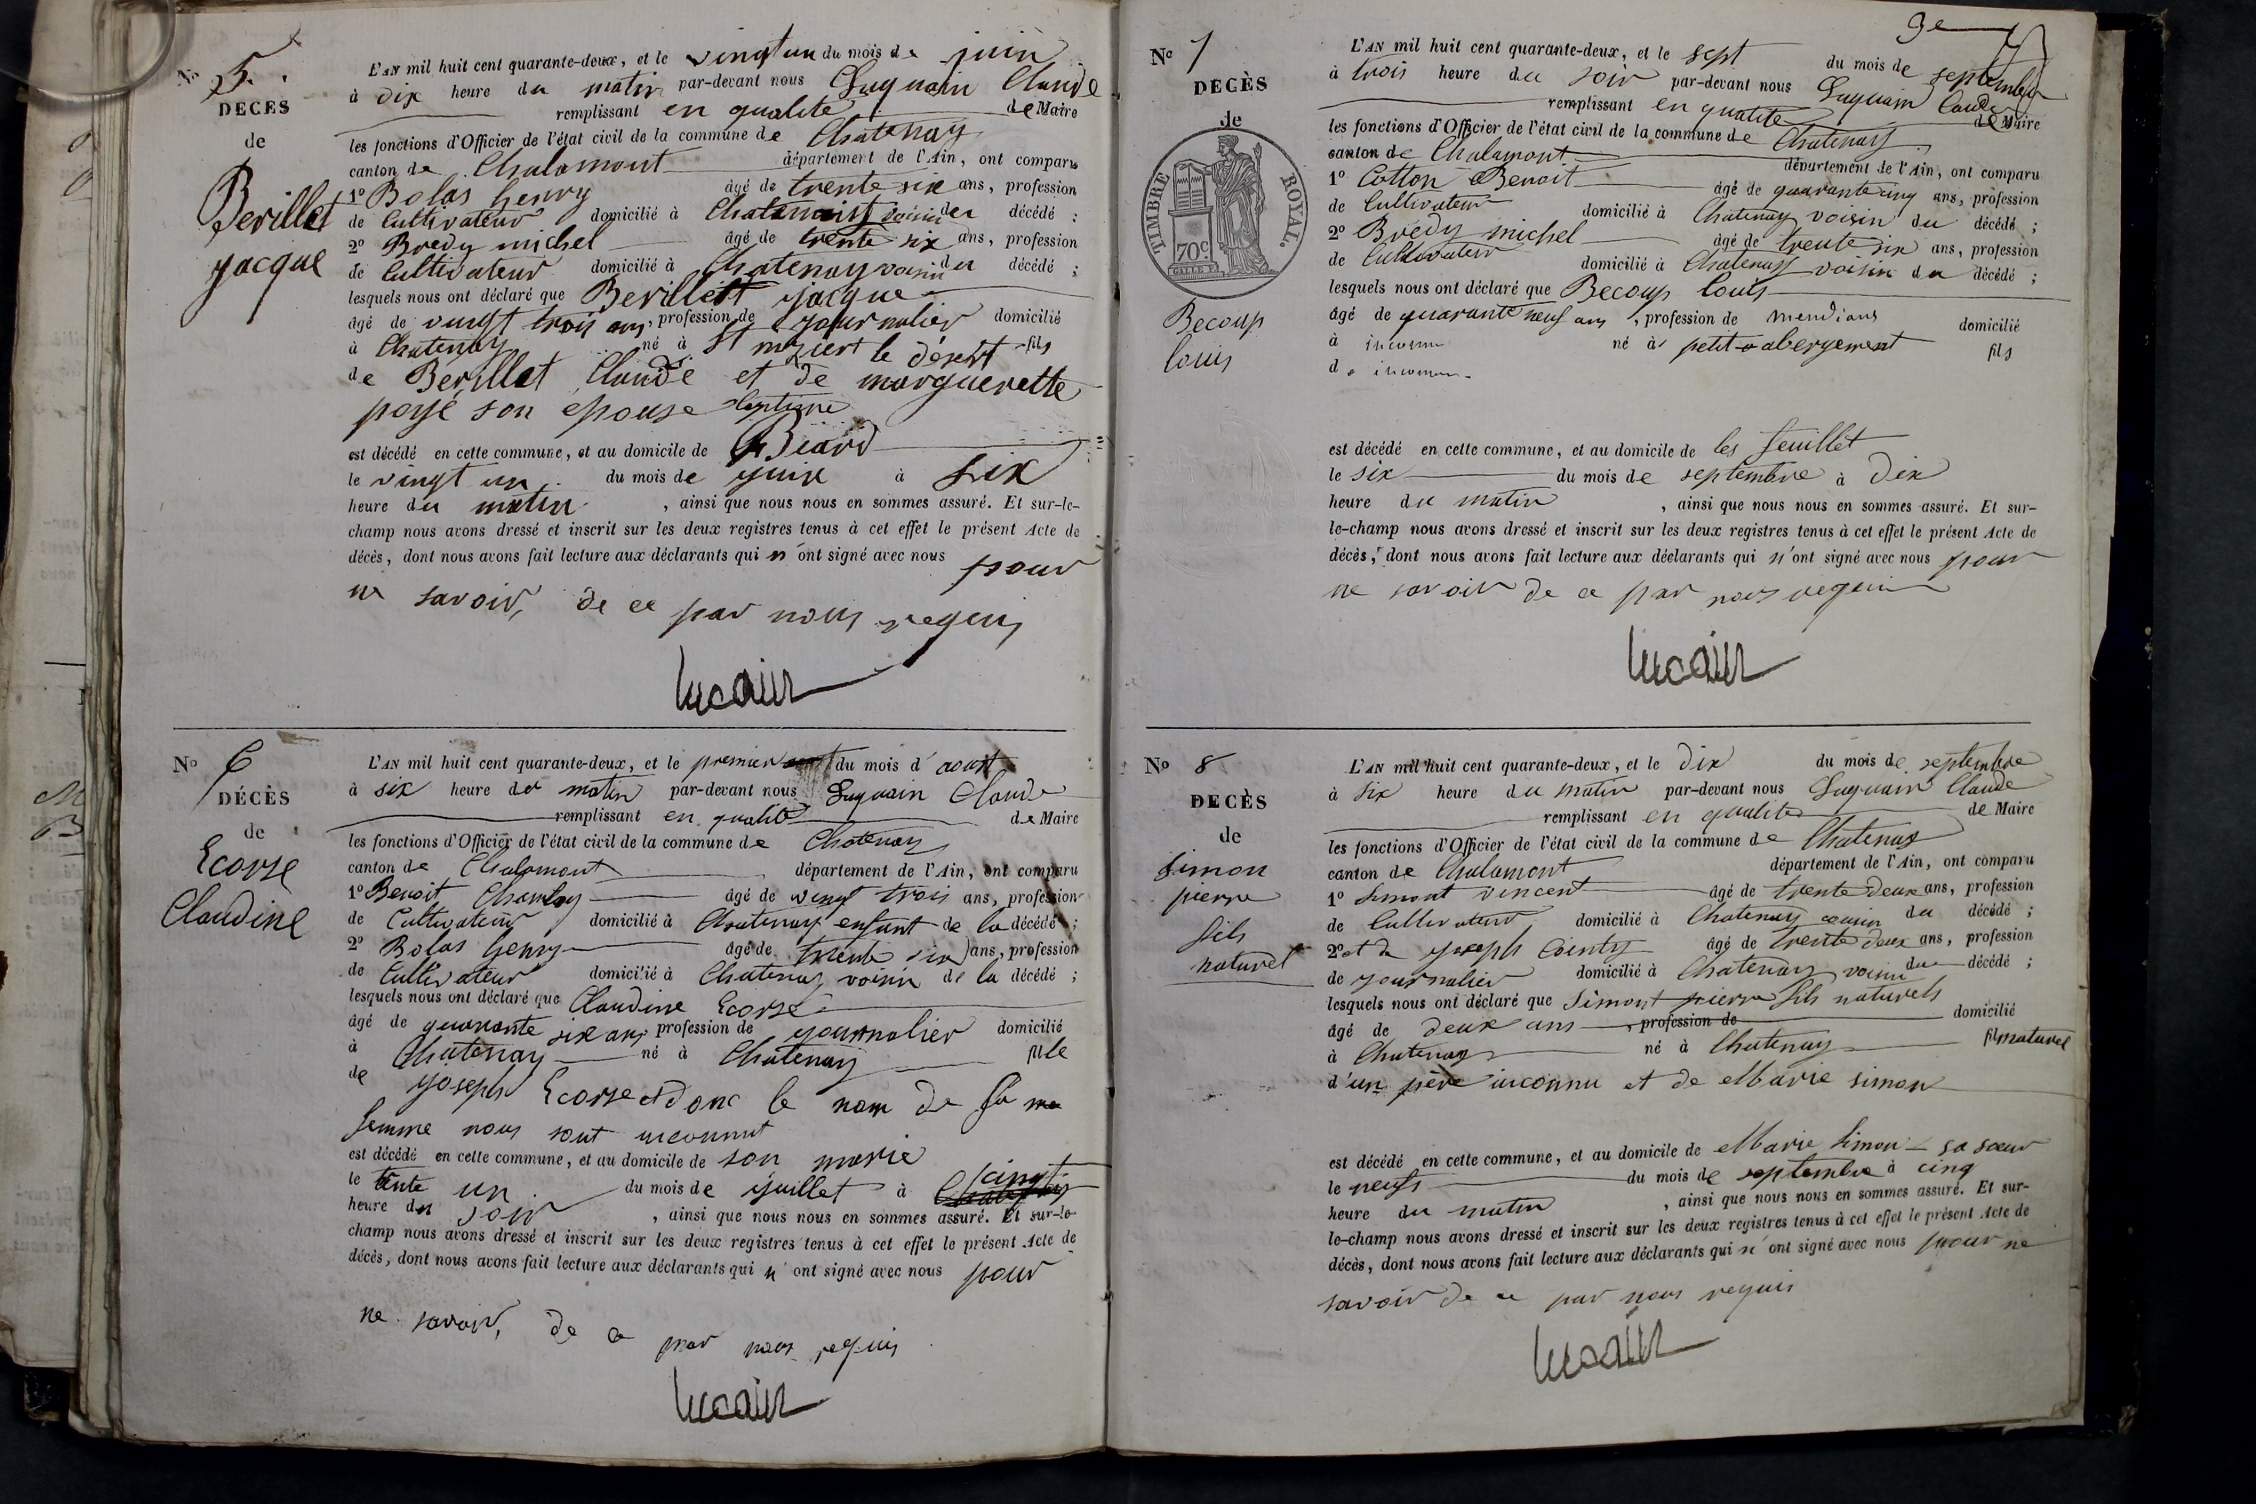 No 5
DÉCÈS
de
Berillet
jacque
L'AN mil huit cent quarante-deux, et le vingt un du mois de juin
à dix heure du matin par-devant nous Luquain Claude
remplissant en qualité de Maire
les fonctions d'Officier de l'état civil de la commune de Chatenay
canton de Chalamont département de l'Ain, ont comparu
1º Bolas henry âgé de trente six ans, profession
de Cultivateur domicilié à Chatenay voisin du décédé ;
2º Bredy michel âgé de trente six ans, profession
de Cultivateur domicilié à Chatenay voisin du décédé ;
lesquels nous ont déclaré que Berillet jacque
âgé de vingt trois ans, profession de journalier domicilié
à Chatenay né à St nizier le désert fils
de Berillet Claude et de marguerette
poyé son epouse
est décédé en cette commune, et au domicile de Biard
le vingt un du mois de juin à six
heure du matin , ainsi que nous nous en sommes assuré. Et sur-le-
champ nous avons dressé et inscrit sur les deux registres tenus à cet effet le présent Acte de
décès, dont nous avons fait lecture aux déclarants qui n'ont signé avec nous pour
ne savoir, de ce par nous requis
lucain
No 6
DÉCÈS
de
Ecorse
Claudine
L'AN mil huit cent quarante-deux, et le premier du mois d'aoust
à six heure du matin par-devant nous Luquain Claude
remplissant en qualité de Maire
les fonctions d'Officier de l'état civil de la commune de Chatenay
canton de Chalamont département de l'Ain, ont comparu
1º Benoit âgé de vingt trois ans, profession
de Cultivateur domicilié à Chatenay enfant de la décédé ;
2º Bolas henry âgé de trente six ans, profession
de Cultivateur domicilié à Chatenay voisin de la décédé ;
lesquels nous ont déclaré que Claudine Ecorse
âgé de quarante six ans profession de journalier domicilié
à Chatenay né à Chatenay file
de joseph Ecorse et donc le nom de sa
femme nous sont inconnut
est décédé en cette commune, et au domicile de son marie
le tente un du mois de juillet à cinqt
heure du soir , ainsi que nous nous en sommes assuré. Et sur-le-
champ nous avons dressé et inscrit sur les deux registres tenus à cet effet le présent Acte de
décès, dont nous avons fait lecture aux déclarants qui n'ont signé avec nous pour
ne savoir, de ce par nous requis
lucain
No 7
DECÈS
de
TIMBRE ROYAL.
70c
Becoup
louis
L'AN mil huit cent quarante-deux, et le sept du mois de septembre
à trois heure du soir par-devant nous Luquain Claude
remplissant en qualité de Maire
les fonctions d'Officier de l'état civil de la commune de Chatenay
canton de Chalamont département de l'Ain, ont comparu
1º Cotton Benoit âgé de quarante cinq ans, profession
de Cultivateur domicilié à Chatenay voisin du décédé ;
2º Brédy michel âgé de trente six ans, profession
de Cultivateur domicilié à Chatenay voisin du décédé ;
lesquels nous ont déclaré que Becoup louis
âgé de quarante neuf ans, profession de mendians domicilié
à inconnu né à petit abergement fils
de inconnu
est décédé en cette commune, et au domicile de les feuillet
le six du mois de septembre à dix
heure du matin , ainsi que nous nous en sommes assuré. Et sur-
le-champ nous avons dressé et inscrit sur les deux registres tenus à cet effet le présent Acte de
décès, dont nous avons fait lecture aux déclarants qui n'ont signé avec nous pour
ne savoir de ce par nous requis
lucain
No 8
DECÈS
de
Simon
pierre
fils
naturel
L'AN mil huit cent quarante-deux, et le dix du mois de septembre
à six heure du matin par-devant nous Luquain Claude
remplissant en qualité de Maire
les fonctions d'Officier de l'état civil de la commune de Chatenay
canton de Chalamont département de l'Ain, ont comparu
1º Simont vincent âgé de trente deux ans, profession
de Cultivateur domicilié à Chatenay du décédé ;
2º et de joseph âgé de trente deux ans, profession
de journalier domicilié à Chatenay voisin du décédé ;
lesquels nous ont déclaré que Simont pierre fils naturels
âgé de deux ans , profession de domicilié
à Chatenay né à Chatenay fils naturel
d'un père inconnu et de Marie simon
est décédé en cette commune, et au domicile de Marie Simon sa sœur
le neuf du mois de septembre à cinq
heure du matin , ainsi que nous nous en sommes assuré. Et sur-
le-champ nous avons dressé et inscrit sur les deux registres tenus à cet effet le présent Acte de
décès, dont nous avons fait lecture aux déclarants qui n'ont signé avec nous pour ne
savoir de ce par nous requis
lucain